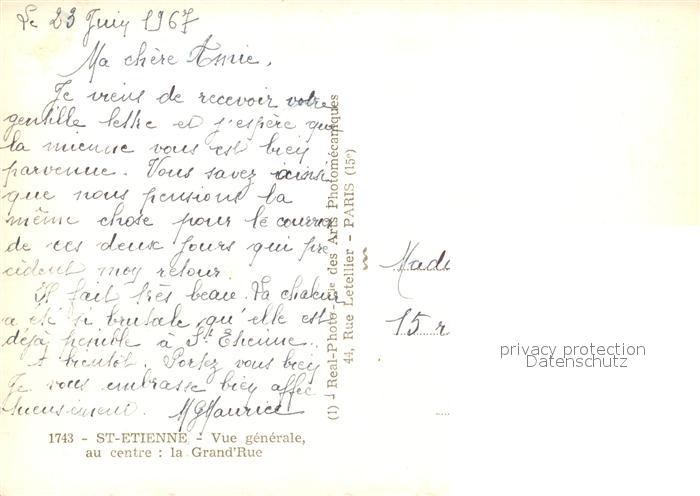 Le 23 Juin 1967
Ma chère Amie,
Je viens de recevoir votre
gentille lettre et j'espère que
la mienne vous est bien
parvenue. Vous savez ainsi
que nous pensions la
même chose pour le courrier
de ces deux jours qui pré
cèdent mon retour.
Il fait très beau. La chaleur
a été si brutale qu'elle est
déjà pénible à St Etienne.
A bientôt. Portez vous bien
Je vous embrasse bien affec
tueusement. MGMaurice
1743 - ST-ETIENNE - Vue générale,
au centre : la Grand'Rue
(1) - Real-Photo - Cie des Arts Photomécaniques
44, Rue Letellier - PARIS (15e)
Mad
15 r
privacy protection
Datenschutz